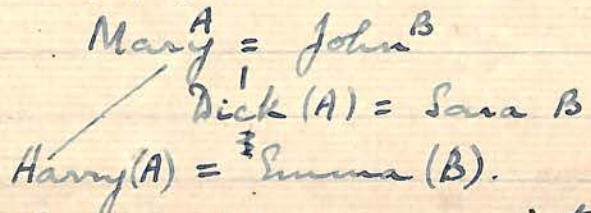 Mary A = John B
Dick (A) = Sara B
Harry (A) = Emma (B).